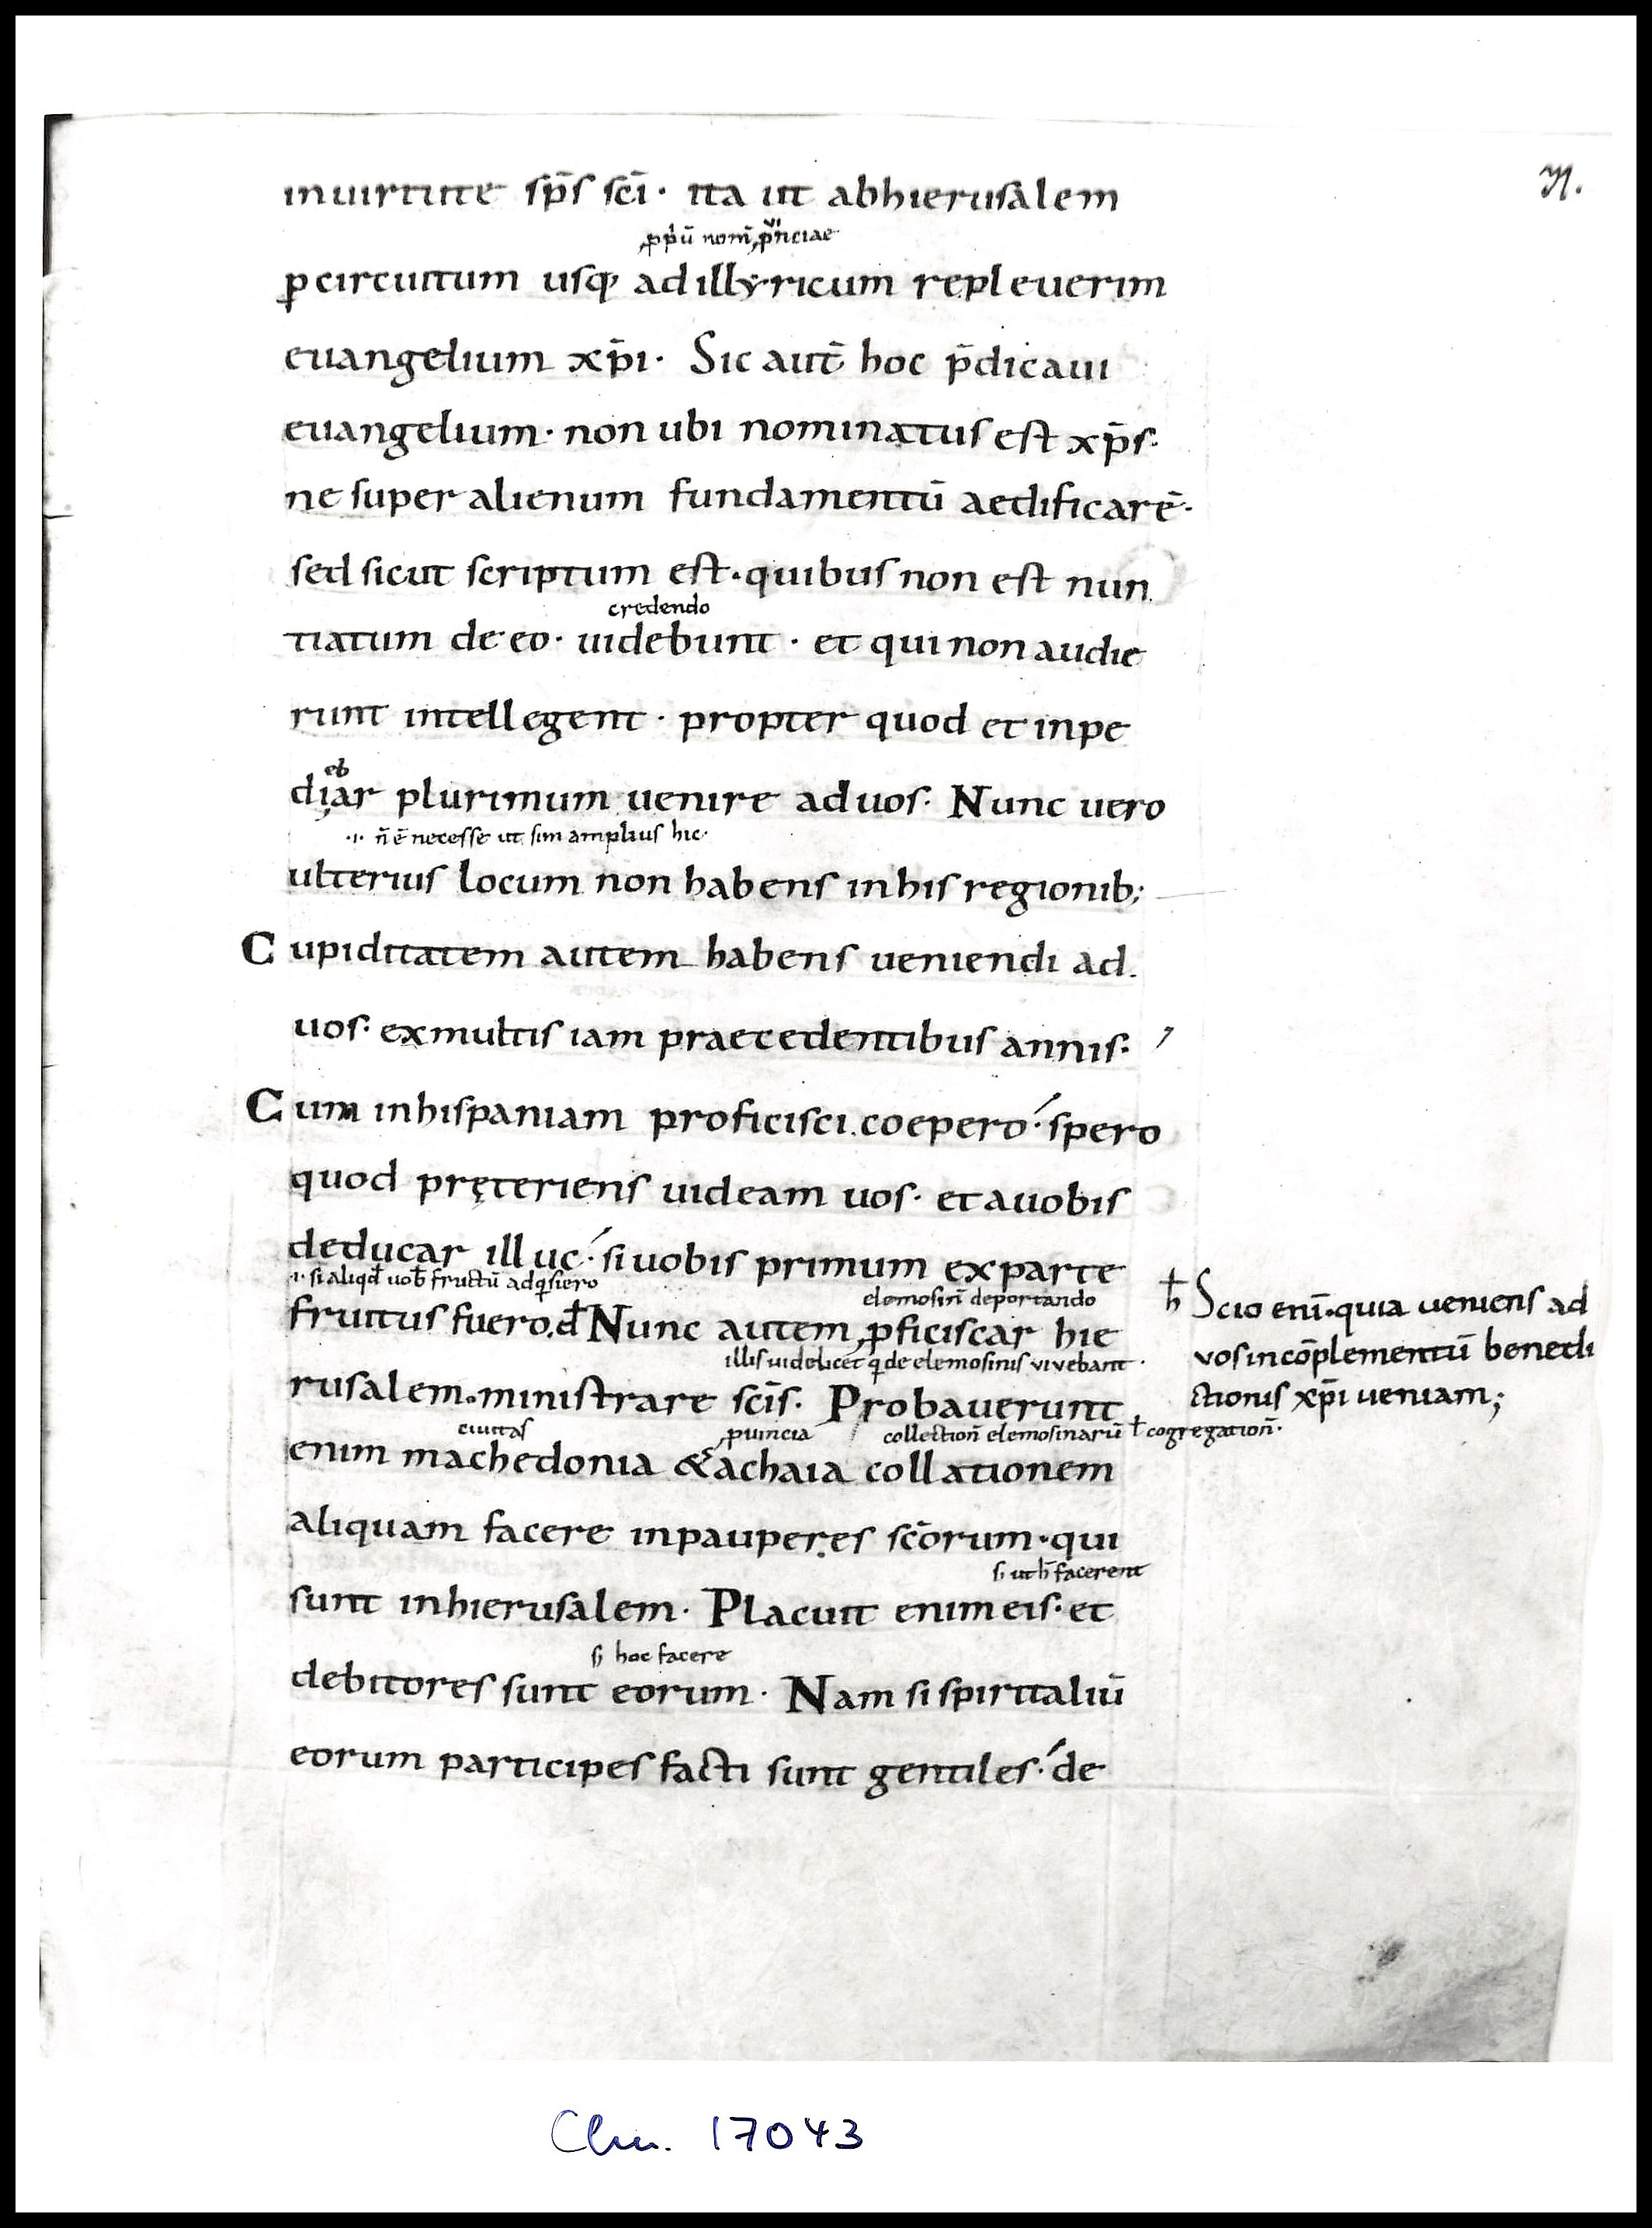 in uirtute sp̄s sc̄i · ita ut abhierusalem
ꝓpriū nom̄ ꝓuinciae
ꝑ circuitum usq; ad illyricum repleuerim
euangelium xp̄i · Sic aut̄ hoc p̄dicaui
euangelium · non ubi nominatus est xp̄s ·
ne super alienum fundamentū aedificarē ·
sed sicut scriptum est · quibus non est nun
credendo
tiatum de eo · uidebunt · et qui non audie
runt intellegent · propter quod et inpe
eb
diar plurimum uenire ad uos · Nunc uero
·i· n̄ ē necesse ut sim amplius hic ·
ulterius locum non habens in his regionib;
Cupiditatem autem habens ueniendi ad
uos · ex multis iam praecedentibus annis ·
Cum in hispaniam proficisci coepero · spero
quod pręteriens uideam uos · et a uobis
deducar illuc · si uobis primum ex parte
·i· si aliqd̄ uob̄ fructū adq̇siero
elemosin̄ deportando
fruitus fuero. đ Nunc autem ꝓficiscar hie
illis uidelicet q̇ de elemosinis vivebant ·
rusalem · ministrare sc̄is · Probauerunt
ciuitas
ꝓuincia
collection̄ elemosinarū ł cogregation̄ ·
enim machedonia & achaia collationem
aliquam facere in pauperes sc̄orum · qui
s̄ ut h̄ facerent
sunt in hierusalem · Placuit enim eis · et
s̄ hoc facere
debitores sunt eorum · Nam si spiritaliū
eorum participes facti sunt gentiles · de
ħ Scio enī · quia ueniens ad
vos in cōplementū benedi
ctionis xp̄i ueniam;
Clm. 17043